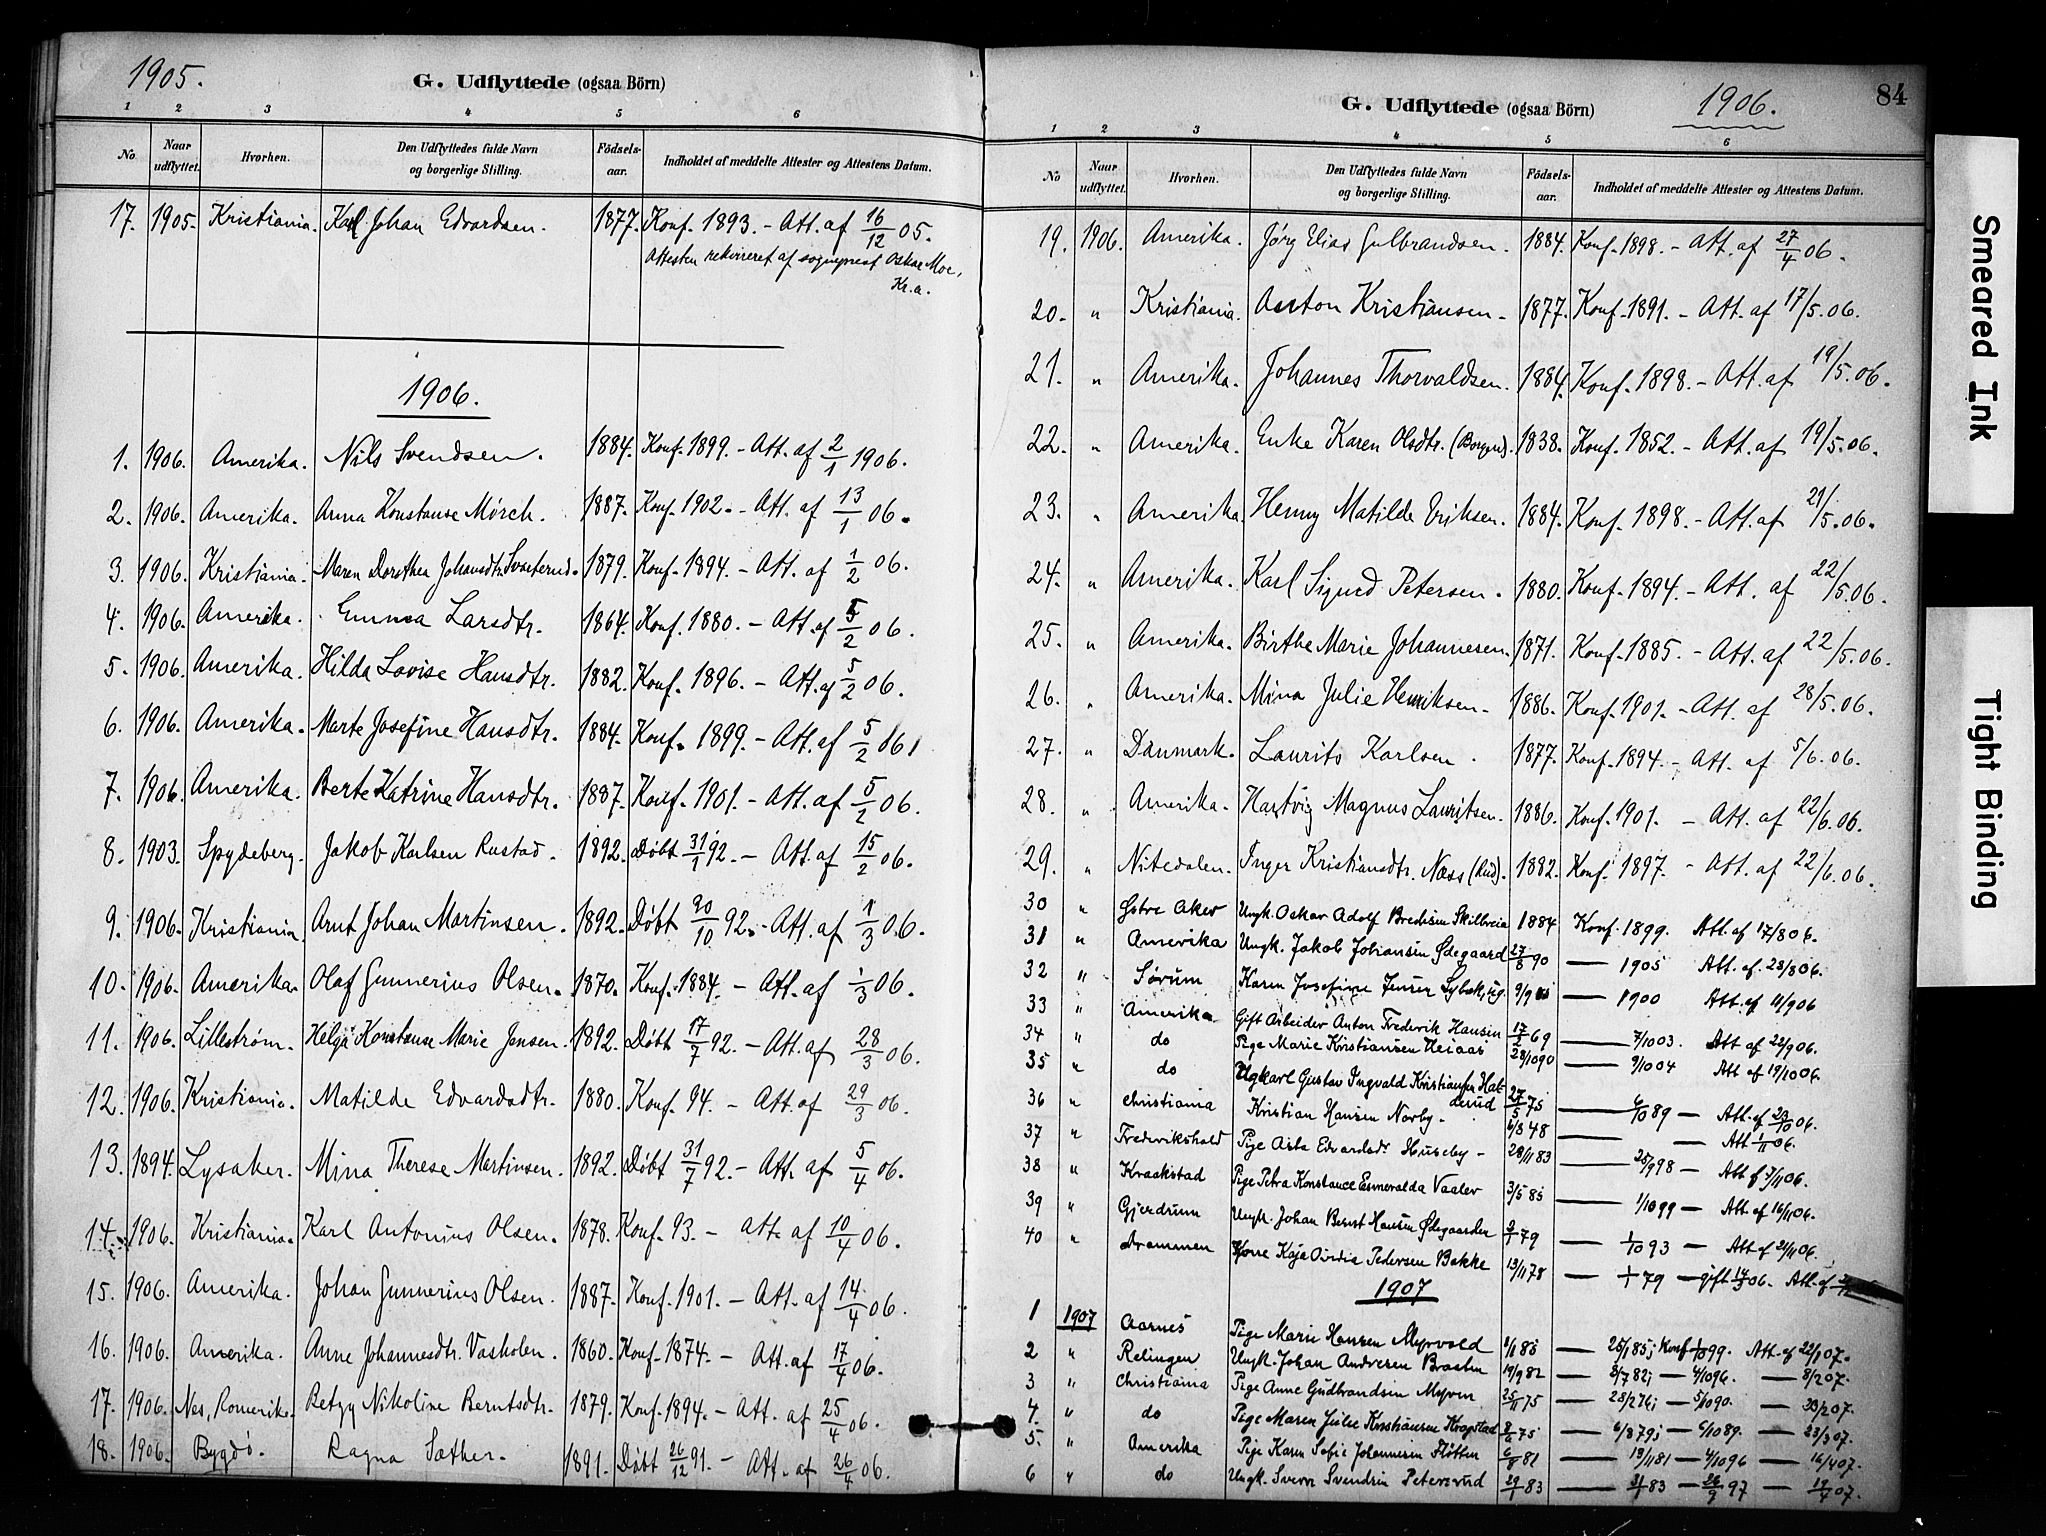 1905.
G. Udflyttede (ogsaa Börn)
1 2 3 4 5 6
No. Naar udflyttet. Hvorhen. Den Udflyttedes fulde Navn og borgerlige Stilling. Födsels-aar. Indholdet af meddelte Attester og Attestens Datum.
17. 1905. Kristiania. Karl Johan Edvardsen. 1877. Konf. 1893. - Att. af 16/12 05.
Attesten rekvireret af sogneprest Oskar Moe,
Kr.a.
1906.
1. 1906. Amerika. Nils Svendsen. 1884. Konf. 1899. - Att. af 2/1 1906.
2. 1906. Amerika. Anna Konstanse Mörch. 1887. Konf. 1902. - Att. af 13/1 06.
3. 1906. Kristiania. Maren Dorothea Johansdtr. 1879. Konf. 1894. - Att. af 1/2 06.
4. 1906. Amerika. Emma Larsdtr. 1864. Konf. 1880. - Att. af 5/2 06.
5. 1906. Amerika. Hilda Lovise Hansdtr. 1882. Konf. 1896. - Att. af 5/2 06.
6. 1906. Amerika. Marte Josefine Hansdtr. 1884. Konf. 1899. - Att. af 5/2 06.
7. 1906. Amerika. Berte Katrine Hansdtr. 1887. Konf. 1901. - Att. af 5/2 06.
8. 1903. Spydeberg. Jakob Karlsen Rustad. 1892. Döbt 31/1 92. - Att. af 15/2 06.
9. 1906. Kristiania. Arnt Johan Martinsen. 1892. Döbt 30/10 92. - Att. af 1/3 06.
10. 1906. Amerika. Olaf Gunnerius Olsen. 1870. Konf. 1884. - Att. af 1/3 06.
11. 1906. Lilleström. Helga Konstanse Marie Jensen. 1892. Döbt 17/7 92. - Att. af 28/3 06.
12. 1906. Kristiania. Matilde Edvardsdtr. 1880. Konf. 94. - Att. af 29/3 06.
13. 1894. Lysaker. Mina Therese Martinsen. 1892. Döbt 31/7 92. - Att. af 5/4 06.
14. 1906. Kristiania. Karl Antonius Olsen. 1878. Konf. 93. - Att. af 10/4 06.
15. 1906. Amerika. Johan Gunnerius Olsen. 1887. Konf. 1901. - Att. af 14/4 06.
16. 1906. Amerika. Anne Johannesdtr. Vasholen. 1860. Konf. 1874. - Att. af 17/4 06.
17. 1906. Nes, Romerike. Betzy Nikoline Berntsdtr. 1879. Konf. 1894. - Att. af 25/4 06.
18. 1906. Bygdö. Ragna Sæther. 1891. Döbt 26/12 91. - Att. af 26/4 06.
G. Udflyttede (ogsaa Börn)
1906.
84
1 2 3 4 5 6
No Naar udflyttet. Hvorhen. Den Udflyttedes fulde Navn og borgerlige Stilling. Födsels-aar. Indholdet af meddelte Attester og Attestens Datum.
19. 1906. Amerika. Jörg Elias Gulbrandsen. 1884. Konf. 1898. - Att. af 27/4 06.
20. " Kristiania. Anton Kristiansen. 1877. Konf. 1891. - Att. af 17/5.06.
21. " Amerika. Johannes Thorvaldsen. 1884. Konf. 1898. - Att. af 19/5.06.
22. " Amerika. Enke Karen Olsdtr. 1838. Konf. 1852. - Att. af 19/5.06.
23. " Amerika. Henny Matilde Eriksen. 1884. Konf. 1898. - Att. af 21/5.06.
24. " Amerika. Karl Sigurd Petersen. 1880. Konf. 1894. - Att. af 22/5.06.
25. " Amerika. Birthe Marie Johannesen. 1871. Konf. 1885. - Att. af 22/5.06.
26. " Amerika. Mina Julie Henriksen. 1886. Konf. 1901. - Att. af 28/5.06.
27. " Danmark. Laurits Karlsen. 1877. Konf. 1894. - Att. af 5/6.06.
28. " Amerika. Hartvig Magnus Lauritsen. 1886. Konf. 1901. - Att. af 22/6.06.
29. " Nitedalen. Inger Kristiansdtr. Næss (Rud). 1882. Konf. 1897. - Att. af 22/6.06.
30 " Östre Aker Ungk. Oskar Adolf Bredesen 1884 Konf. 1899. Att. af 17/8 06.
31 " Amerika Ungk. Jakob Johansen Ødegaard 27/8 90 — 1905 Att. af. 28/8 06.
32 " Sörum Karen Josefine Jenser 9/9 — 1900 Att. af 11/9 06
33 " Amerika Gift Arbeider Anton Frederik Hansen 17/2 69 — 7/10 03. Att af 22/9 06.
34 " do Pige Marie Kristiansen 28/10 90 — 9/10 04 Att af 19/10 06.
35 " do Ugk Karl Gustav Ingvald Kristiansen 27/5 75 — 6/10 89 — Att. af 23/10 06.
36 " Christiania Kristian Hansen Nørby. 6/3 48 — — Att 1/11 06.
37 " Frederikshald Pige Asta Edvardsdr. Huseby 28/11 83 — 25/9 98 — Att af 7/11 06.
38 " Kraakstad Pige Petra Konstance Esmeralda Vaaler 3/5 85 — 1/10 99 — Att. af 16/11 06.
39 " Gjerdrum Ungk. Johan Bernt Hansen Ødegaarden 2/7 79 — 1/10 93 — Att af 21/11 06.
40 " Drammen Kone Kaja Pedersen Bakke 13/11 78 — 1/1 79 — gift 06. Att. af
1907
1 1907 Aarnes Pige Marie Hansen Myrvold 1/1 85 — 25/1 85; Konf 1/10 99. Att. af 22/1 07.
2 " Relingen Ungk. Johan Andresen Braaten 19/9 82 — 2/7 82; — 4/10 96. — 8/2 07.
3 " Christiania Pige Anne Gudbrandsen Myren 25/11 75 — 28/2 76; — 5/10 90. — 23/2 07.
4. " do Pige Maren Julie Kristiansen Krogstad 75 — 6/8 79; — 6/10 89. — 23/3 07.
5. " Amerika Pige Karen Sofie Johannesen Flötten 6/8 81 — 13/11 81 — 4/10 96 — 16/4 07.
6 " do Ungk. Svendsen Petersrud 29/1 83 — 83 — 26/9 97 — 19/4 07.
Smeared Ink
Tight Binding